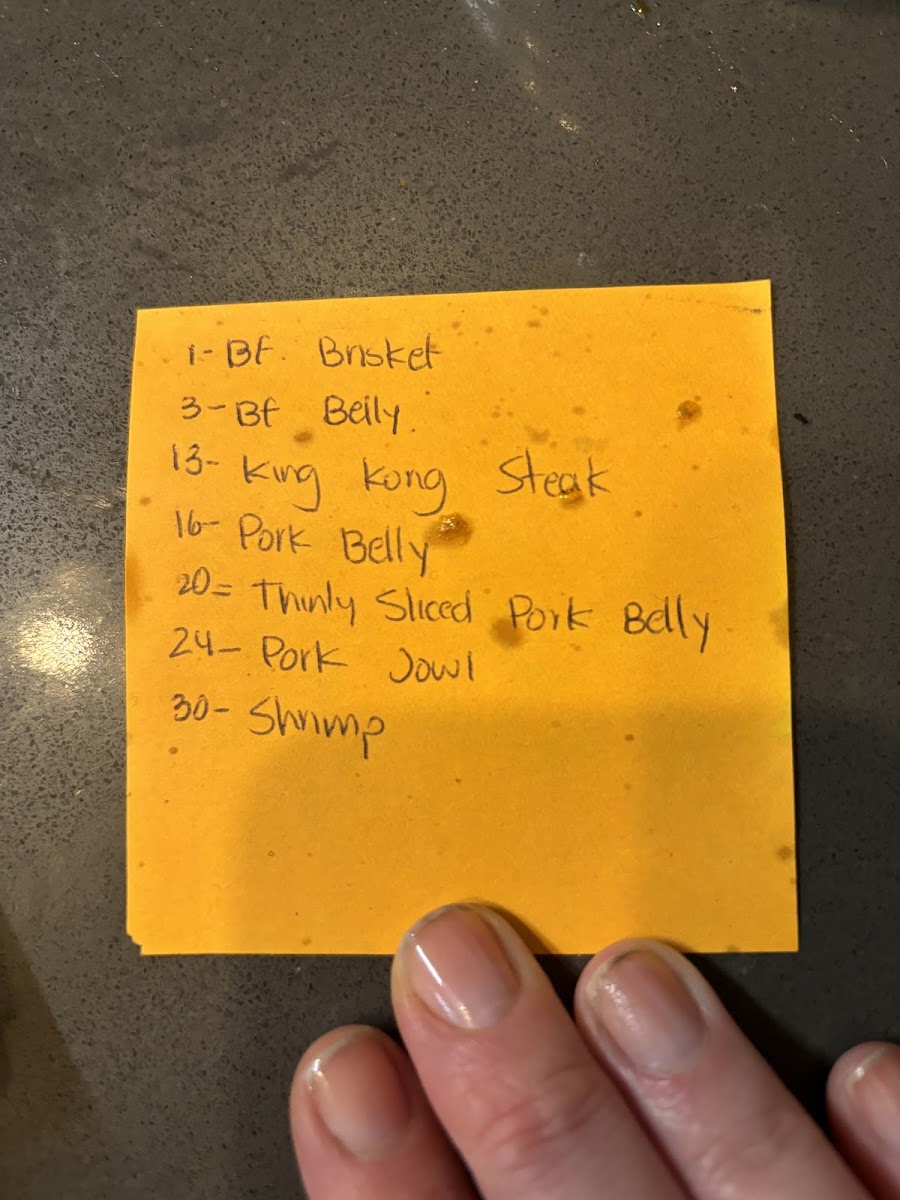 1- Bf. Brisket
3- Bf Belly.
13- King Kong Steak
16- Pork Belly
20= Thinly Sliced Pork Belly
24- Pork Jowl
30- Shrimp